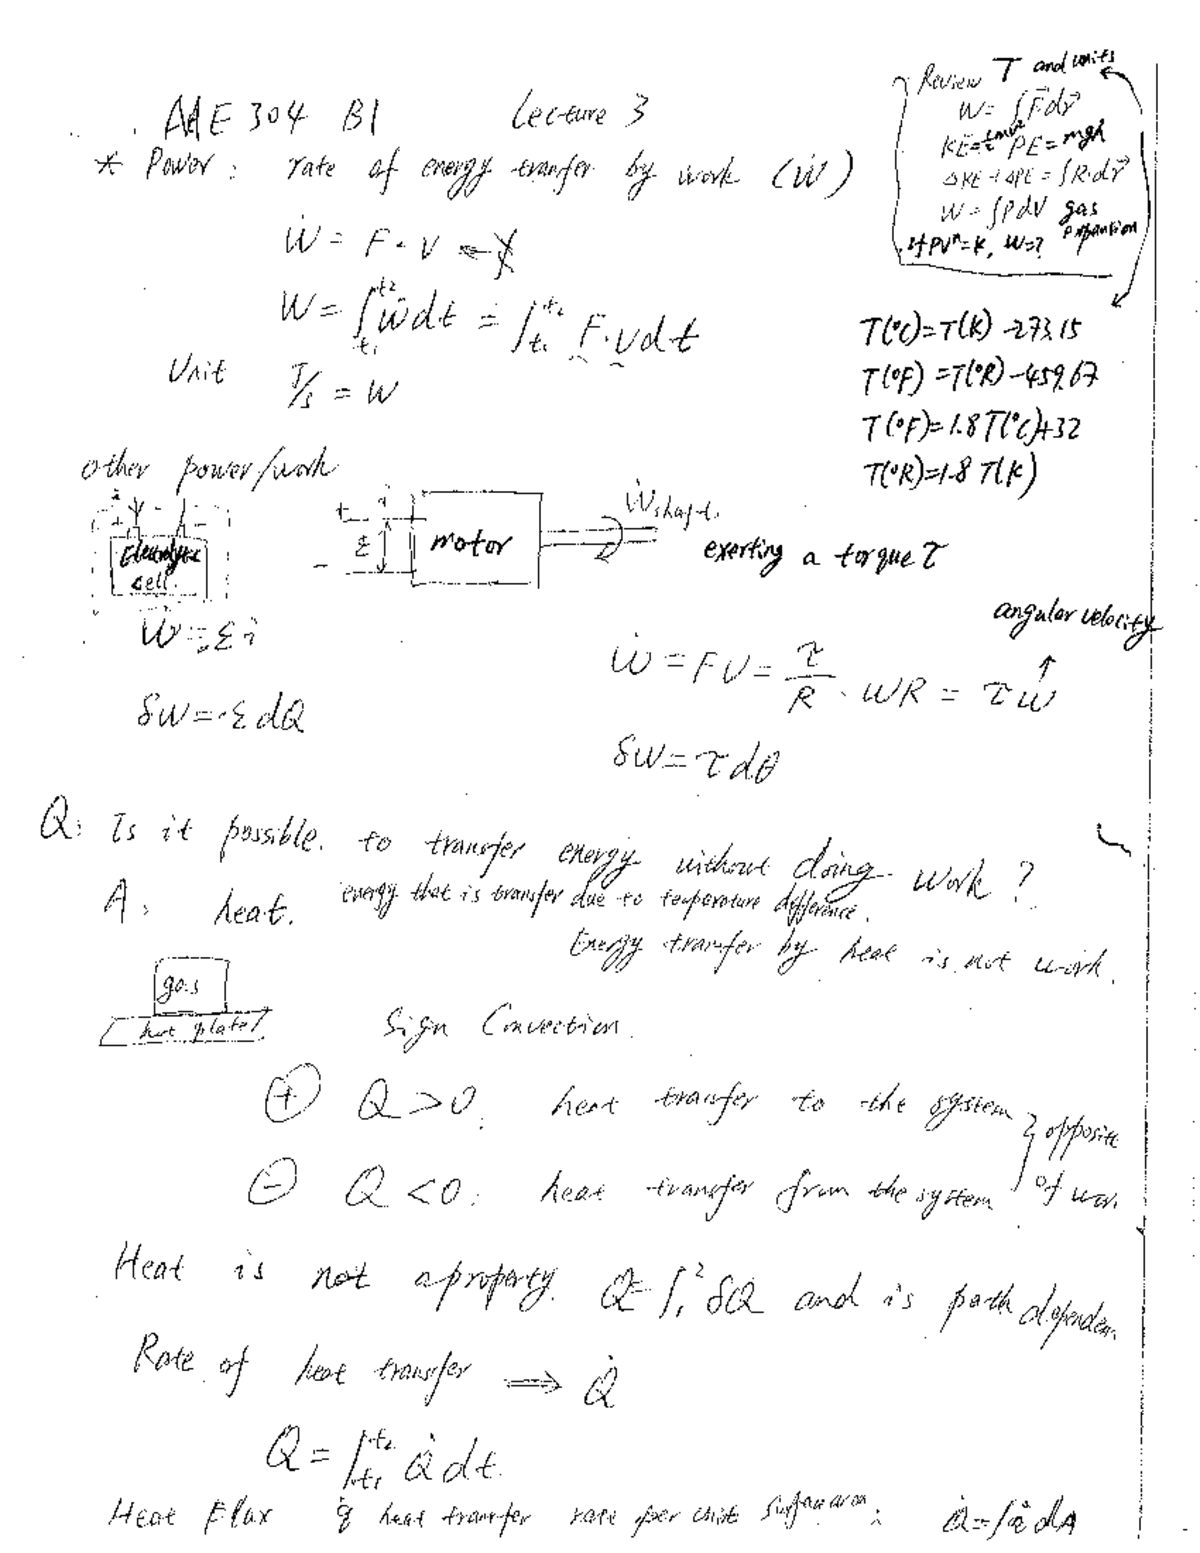 AAE 304 B1 Lecture 3
Review T and units
W = ∫F⃗dr⃗
KE=½mv² PE=mgh
ΔKE + ΔPE = ∫R·dr⃗
W = ∫PdV gas expansion
if PVⁿ=K, W=?
* Power: rate of energy transfer by work (Ẇ)
Ẇ = F · V
W = ∫t₁^t₂ Ẇdt = ∫t₁^t₂ F·vdt
Unit J/s = W
T(°C)=T(K)-273.15
T(°F)=T(°R)-459.67
T(°F)=1.8T(°C)+32
T(°R)=1.8 T(K)
other power/work
i + -
Electrolytic cell
+ i
ε
-
motor
Ẇshaft
exerting a torque τ
Ẇ = -εi
δW = -εdQ
angular velocity
Ẇ = FV = τ/R · WR = τω
δW = τdθ
Q: Is it possible to transfer energy without doing work?
A: heat. energy that is transfer due to temperature difference.
Energy transfer by heat is not work.
gas
hot plate
Sign Convection
⊕ Q>0: heat transfer to the system
⊖ Q<0: heat transfer from the system
} opposite of wor
Heat is not a property. Q=∫₁² δQ and is path dependen
Rate of heat transfer ⟹ Q̇
Q = ∫t₁^t₂ Q̇ dt.
Heat Flux q̇ heat transfer rate per unit surface area: Q̇=∫q̇ dA